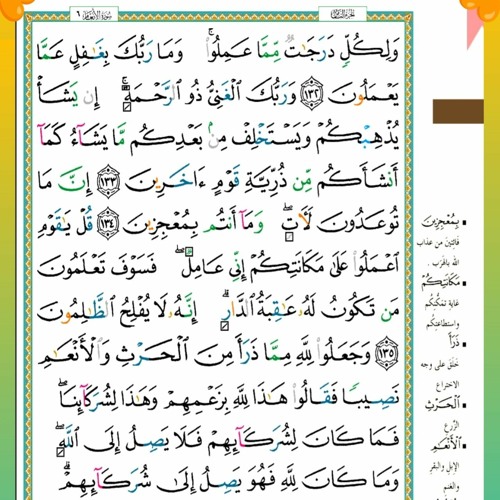 سُورَةُ الأَنْعَامِ ٦
وَلِكُلٍّ دَرَجَاتٌ مِّمَّا عَمِلُوا۟ وَمَا رَبُّكَ بِغَافِلٍ عَمَّا
يَعْمَلُونَ ١٣٢ وَرَبُّكَ ٱلْغَنِىُّ ذُو ٱلرَّحْمَةِ إِن يَشَأْ
يُذْهِبْكُمْ وَيَسْتَخْلِفْ مِنۢ بَعْدِكُم مَّا يَشَآءُ كَمَآ
أَنشَأَكُم مِّن ذُرِّيَّةِ قَوْمٍ ءَاخَرِينَ ١٣٣ إِنَّ مَا
تُوعَدُونَ لَآتٍ وَمَآ أَنتُم بِمُعْجِزِينَ ١٣٤ قُلْ يَٰقَوْمِ
ٱعْمَلُوا۟ عَلَىٰ مَكَانَتِكُمْ إِنِّى عَامِلٌ فَسَوْفَ تَعْلَمُونَ
مَن تَكُونُ لَهُۥ عَٰقِبَةُ ٱلدَّارِ إِنَّهُۥ لَا يُفْلِحُ ٱلظَّٰلِمُونَ
١٣٥ وَجَعَلُوا۟ لِلَّهِ مِمَّا ذَرَأَ مِنَ ٱلْحَرْثِ وَٱلْأَنْعَٰمِ
نَصِيبًا فَقَالُوا۟ هَٰذَا لِلَّهِ بِزَعْمِهِمْ وَهَٰذَا لِشُرَكَآئِنَا
فَمَا كَانَ لِشُرَكَآئِهِمْ فَلَا يَصِلُ إِلَى ٱللَّهِ
وَمَا كَانَ لِلَّهِ فَهُوَ يَصِلُ إِلَىٰ شُرَكَآئِهِمْ
بِمُعْجِزِينَ
فَائِتِينَ من عذاب
الله بالهرب .
مَكَانَتِكُمْ
غاية تمكّنكم
واستطاعتكم
ذَرَأَ
خلق على وجه
الاختراع
الْحَرْثِ
الزرع
الْأَنْعَٰمِ
الإبل والبقر
والغنم